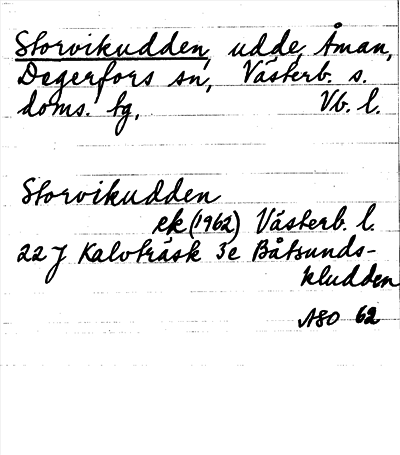 Storvikudden, udde, Åman,
Degerfors sn, Västerb. s.
doms. tg, Vb. l.
Storvikudden
ek (1962) Västerb. l.
22 J Kalvträsk 3e Båtsunds-
kludden
ASO 62